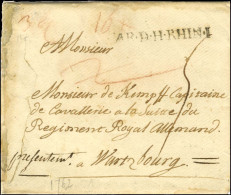 AR.D.H-RHIN.I
A Monsieur
Monsieur de Kempff Capitaine
de Cavallerie a la Suite du
Regiment Royal Allemand.
presentemt. a Wurtzbourg
1762